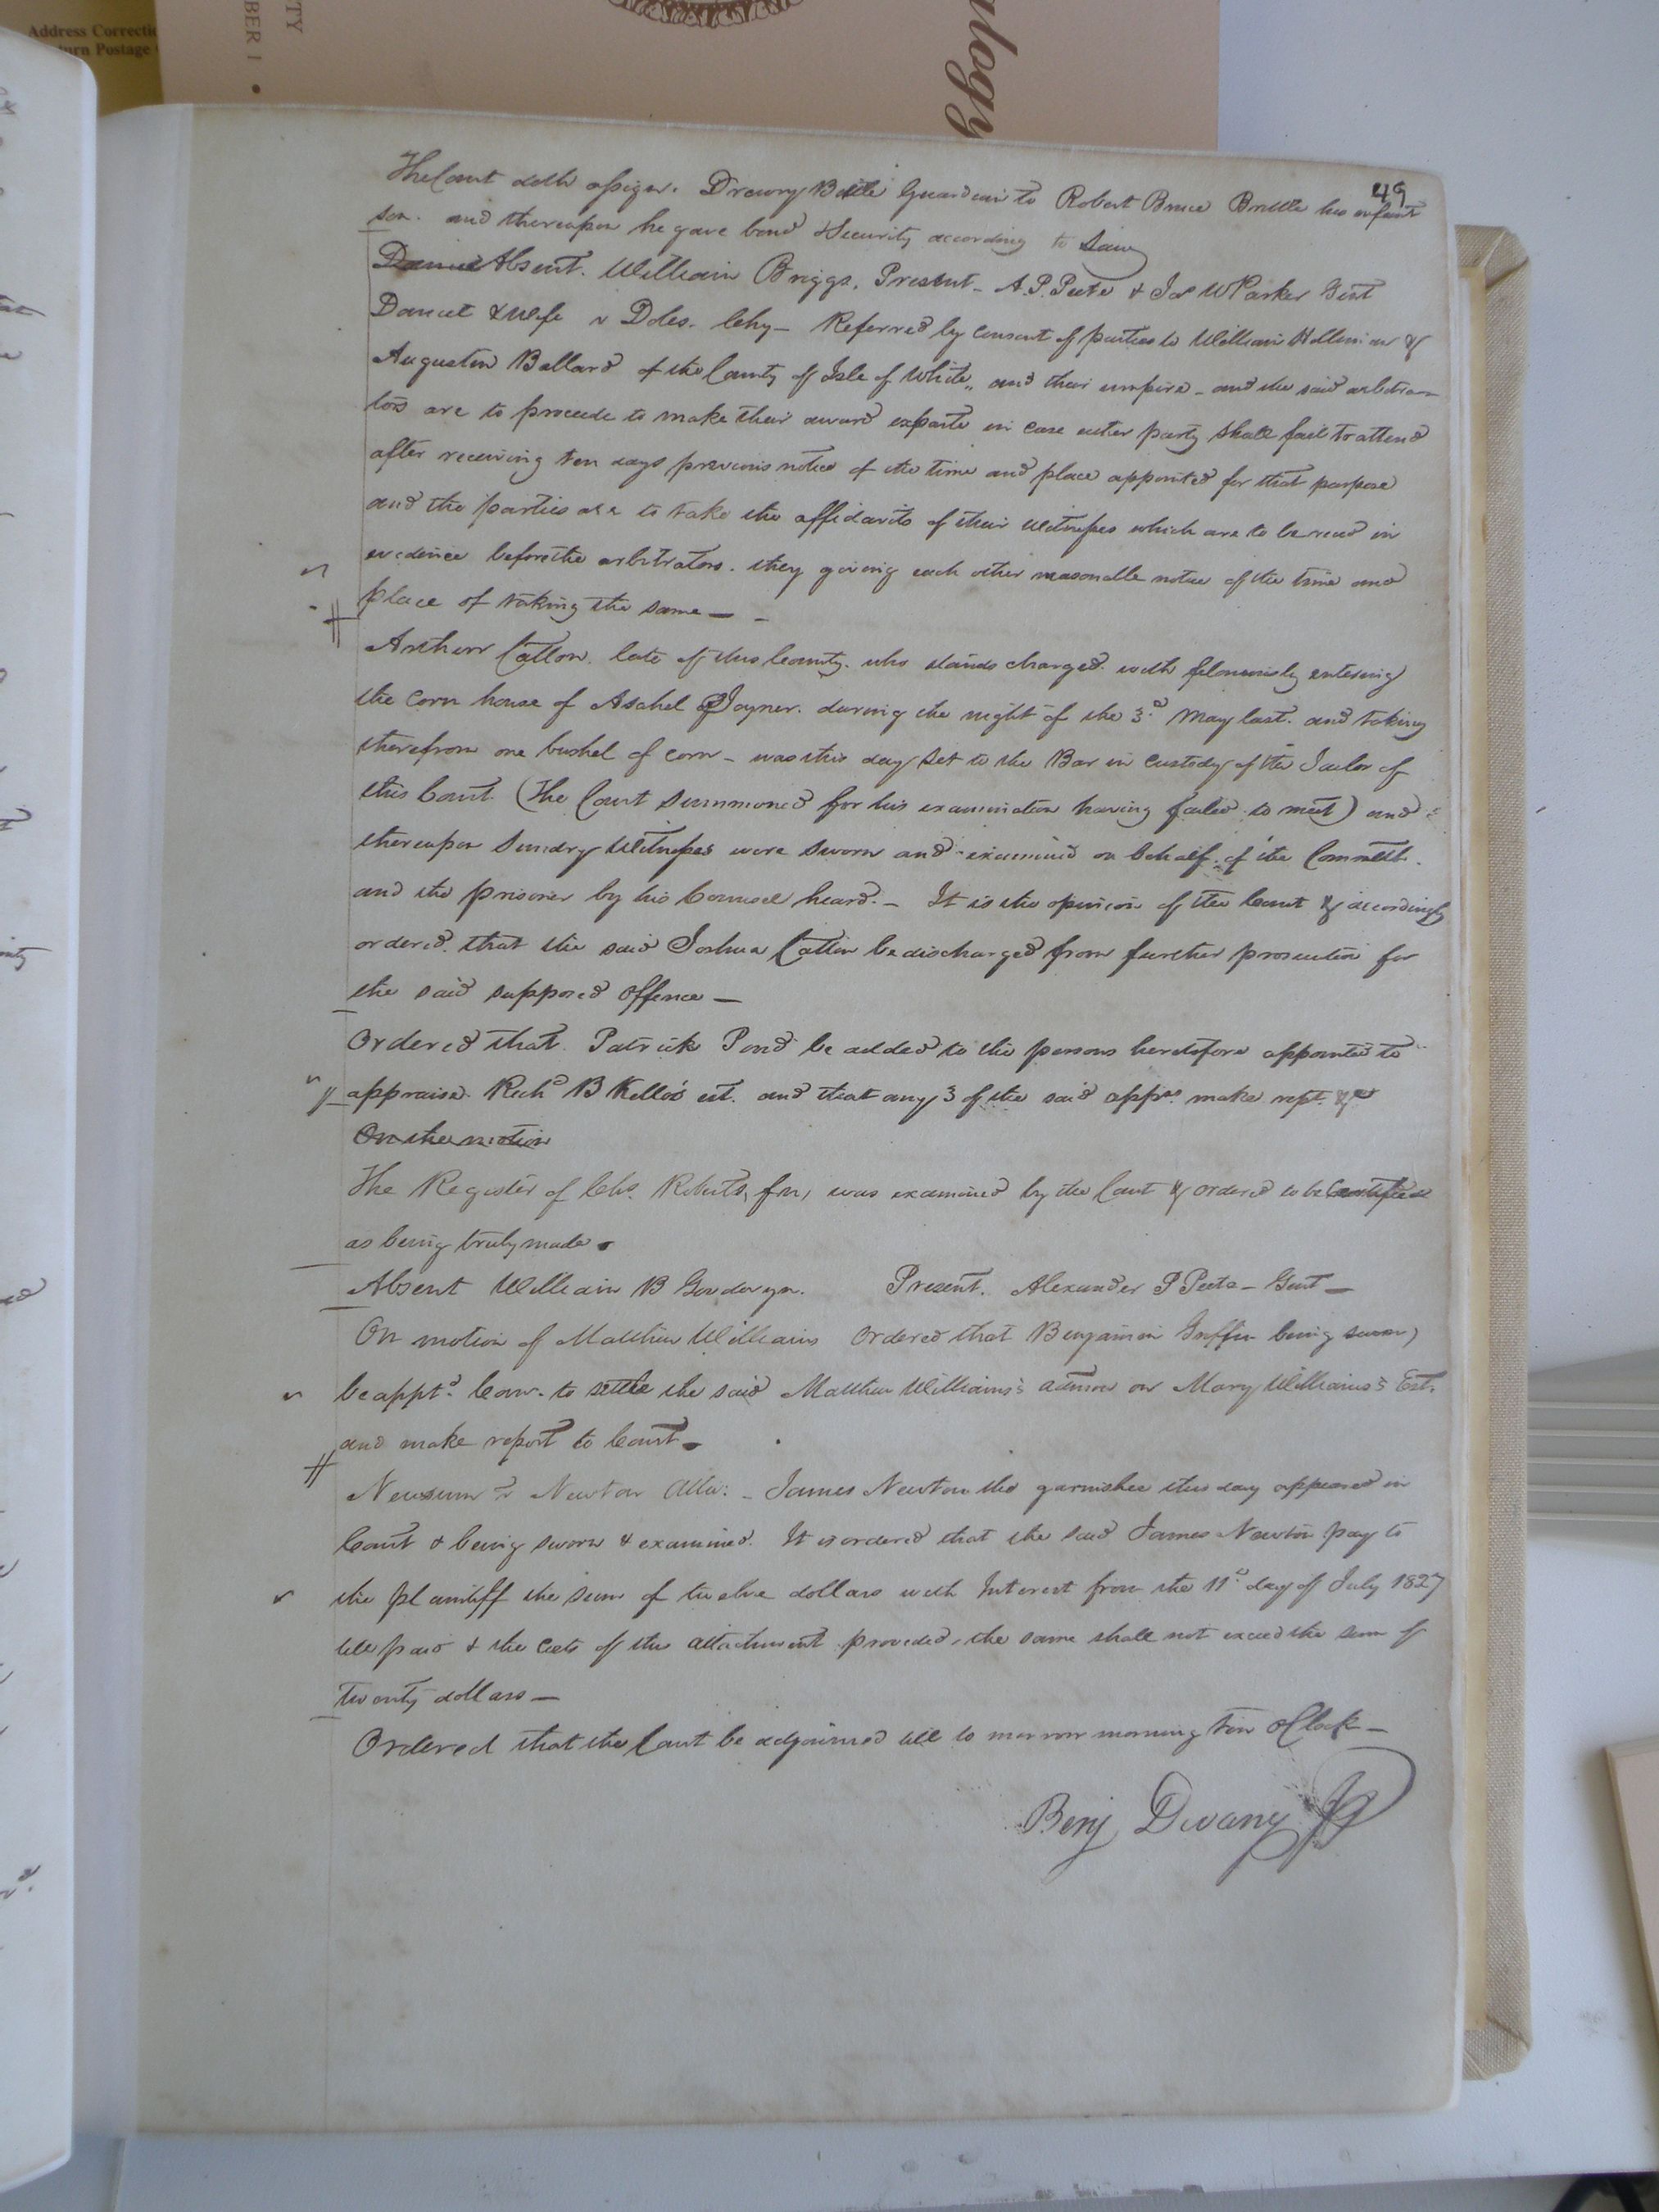 Address Correctio
urn Postage
TY
BER 1 •
ulogy
49
The Court doth assign. Drewry Bittle Guardian to Robert Bruce Brittle his infant
son. and thereupon he gave bond & Security according to Law
Daniel Absent. William Briggs. Present - A. P. Peete & Jas W Parker Gent
Daniel & Wife v Doles. Chy - Referred by consent of parties to William &
Augustin Ballard of the County of Isle of White, and their umpire - and the said arbitra-
tors are to proceede to make their award exparte in case either party shall fail to attend
after receiving ten days previous notice of the time and place appointed for that purpose
and the parties are to take the affidavits of their Witnesses which are to be read in
evidence before the arbitrators. they giving each other reasonable notice of the time and
place of taking the same -
Arthur Catton. late of this County. who stands charged with feloniously entering
the Corn house of Asahel Joyner. during the night of the 3d May last. and taking
therefrom one bushel of corn - was this day Set to the Bar in Custody of the Jailor of
this Court (the Court Summoned for his examination having failed to meet) and
thereupon Sundry Witnesses were sworn and examined on behalf of the Commlth.
and the prisoner by his Counsel heard. - It is the opinion of the Court & accordingly
ordered. that the said Joshua Catton be discharged from further prosecution for
the said supposed offence -
Ordered that Patrick Pond be added to the persons heretofore appointed to
appraise Richd B Kello's est. and that any 3 of the said apprs. make rept. &c
On the motion
The Register of Chs. Roberts, fn, was examined by the Court & ordered to be Certified
as being truly made.
Absent William B Goodwyn. Present. Alexander P Peete - Gent -
On motion of Matthew Williams Ordered that Benjamin Griffin being sworn,
be apptd. Com. to settle the said Matthew Williams's admon on Mary Williams's Est.
and make report to Court -
Newsum v Newton Atta: - James Newton the garnishee this day appeared in
Court & being sworn & examined. It is ordered that the said James Newton pay to
the plaintiff the sum of twelve dollars with Interest from the 11th day of July 1827
till paid & the Costs of the attachment provided, the same shall not exceed the sum of
twenty dollars -
Ordered that the Court be adjourned till to morrow morning ten oClock -
Benj Devany